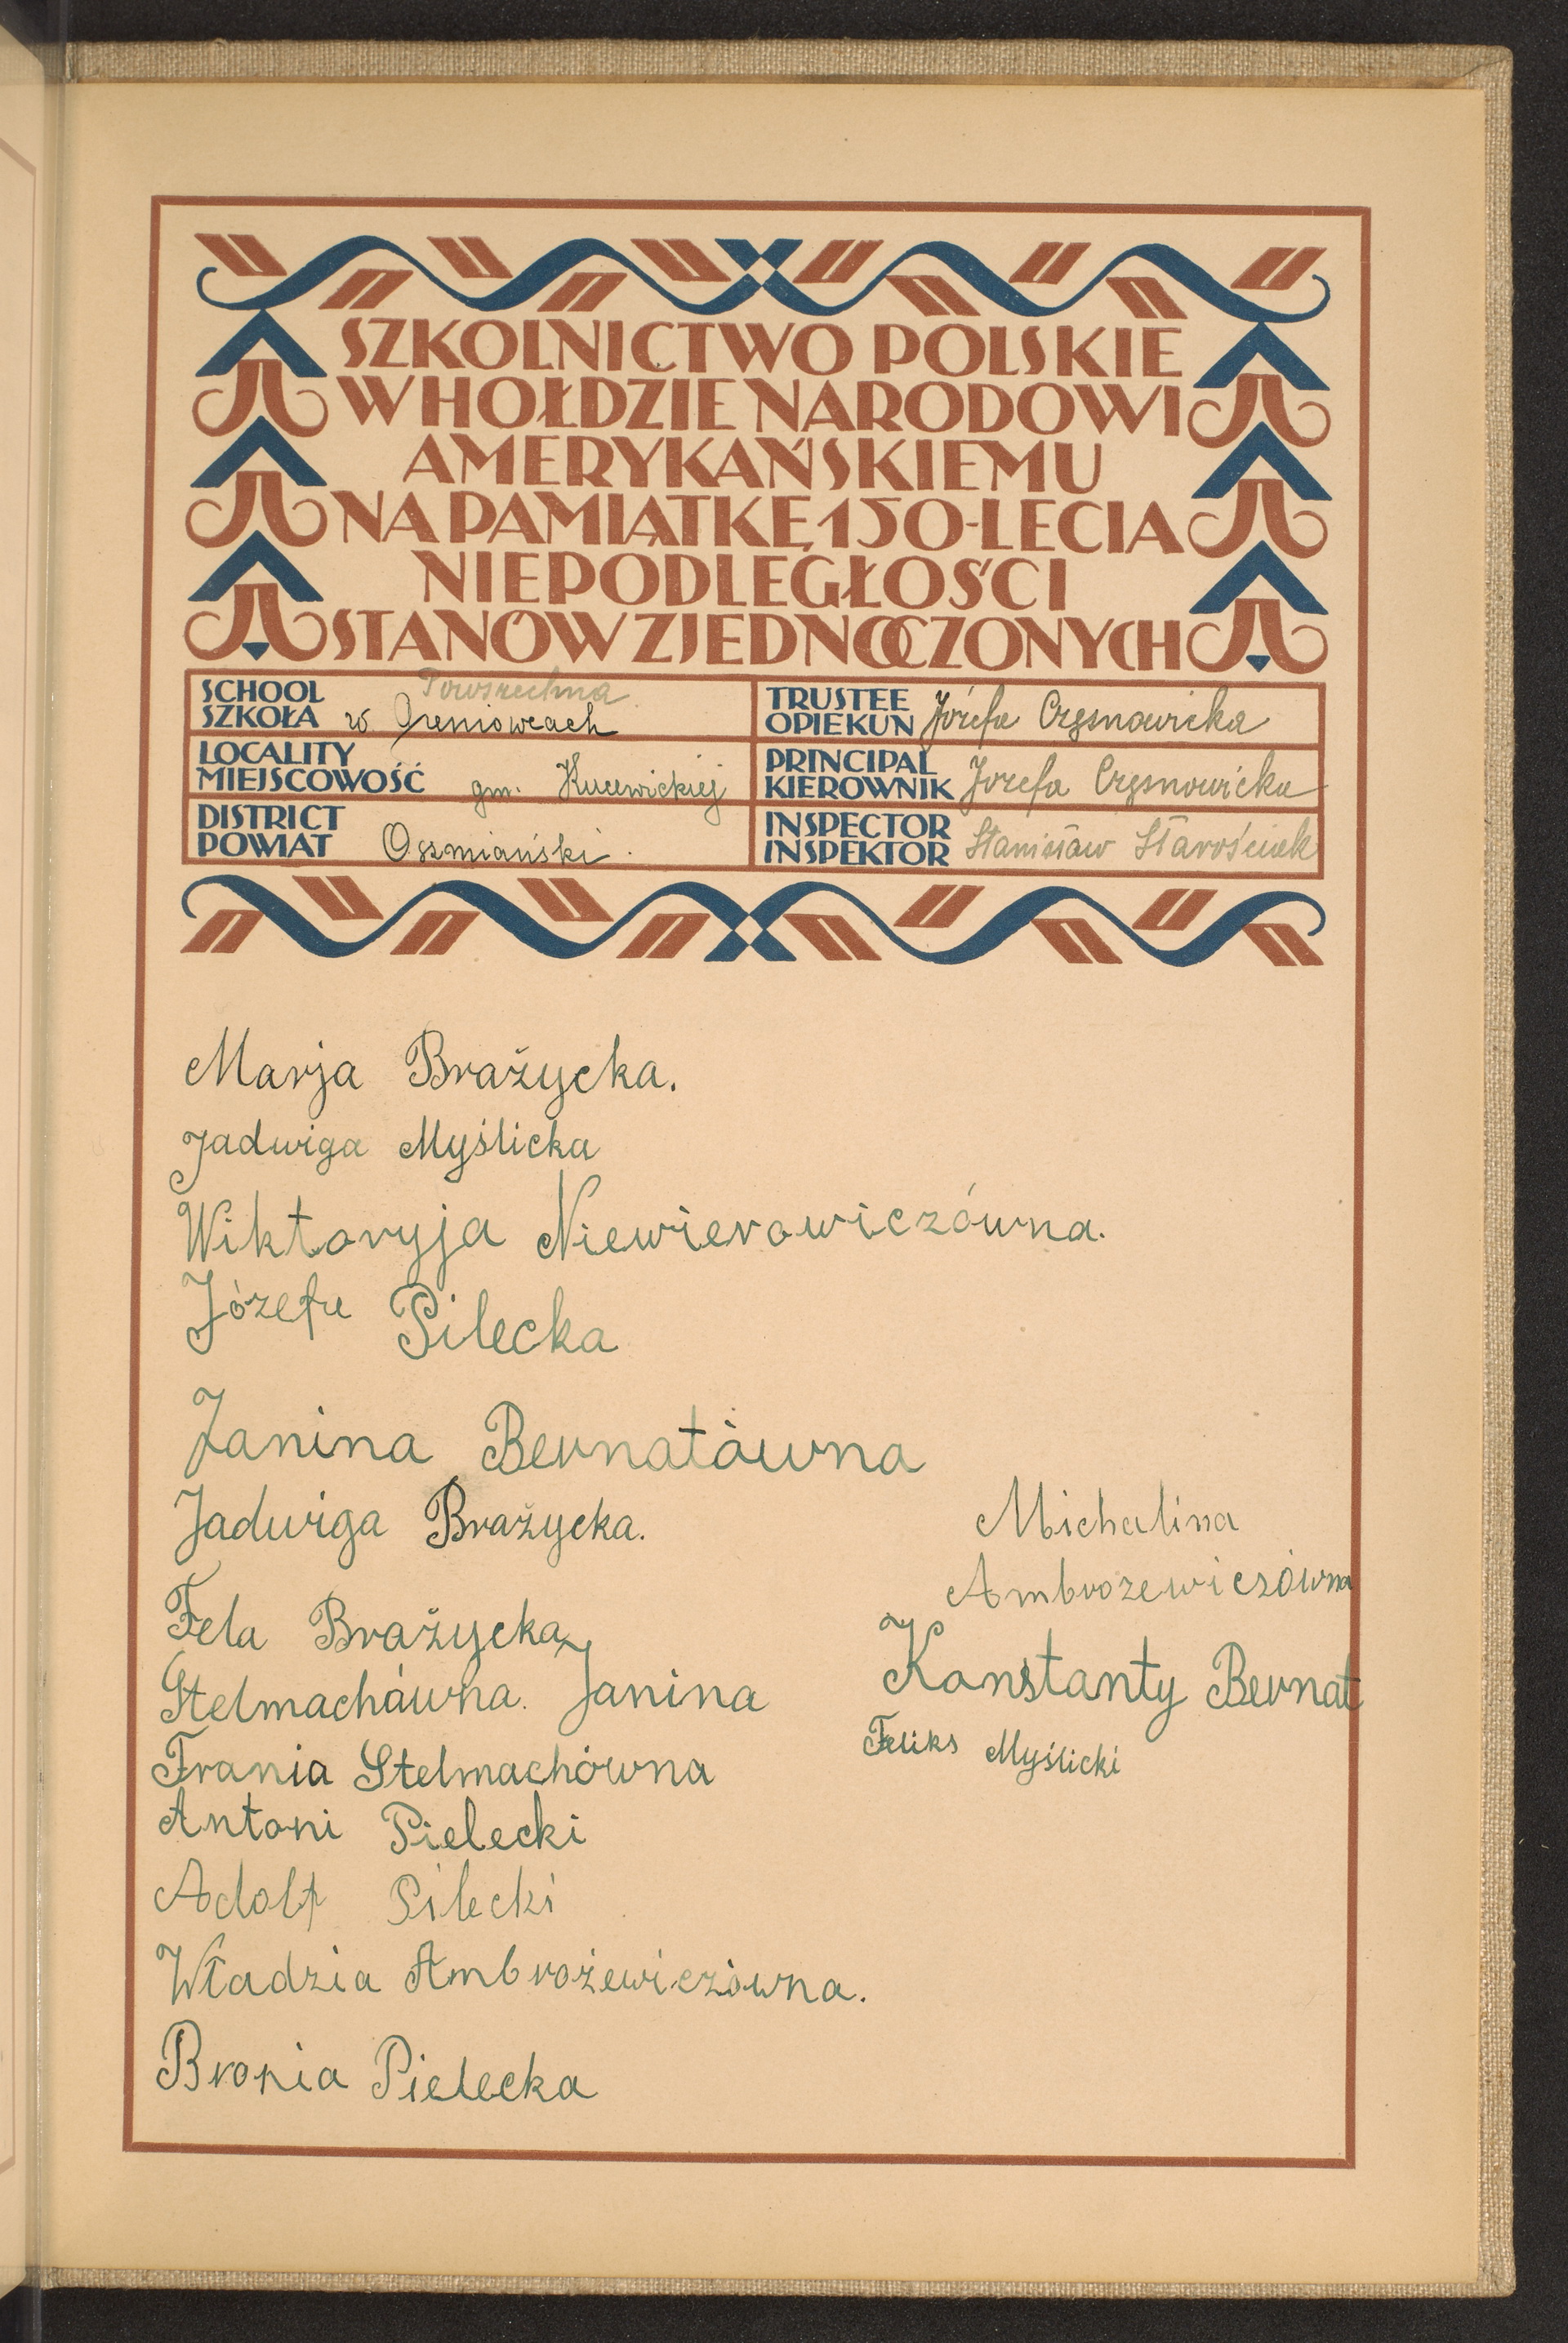 SZKOLNICTWO POLSKIE
W HOŁDZIE NARODOWI
AMERYKAŃSKIEMU
NA PAMIĄTKĘ 150-LECIA
NIEPODLEGŁOŚCI
STANÓW ZJEDNOCZONYCH
SCHOOL
SZKOŁA
Powszechna
w Greniowcach
LOCALITY
MIEJSCOWOŚĆ
gm. Kucewickiej
DISTRICT
POWIAT
Oszmiański.
TRUSTEE
OPIEKUN
Józefa Czesnowicka
PRINCIPAL
KIEROWNIK
Józefa Czesnowicka
INSPECTOR
INSPEKTOR
Stanisław Starościak
Marja Brażycka.
Jadwiga Myślicka
Wiktoryja Niewierowiczówna.
Józefa Pilecka
Janina Bernatówna
Jadwiga Brażycka.
Fela Brażycka
Stelmachówna. Janina
Frania Stelmachówna
Antoni Pielecki
Adolf Pilecki
Władzia Ambrożewiczówna.
Bronia Pielecka
Michalina
Ambrozewiczówna
Konstanty Bernat
Feliks Myślicki